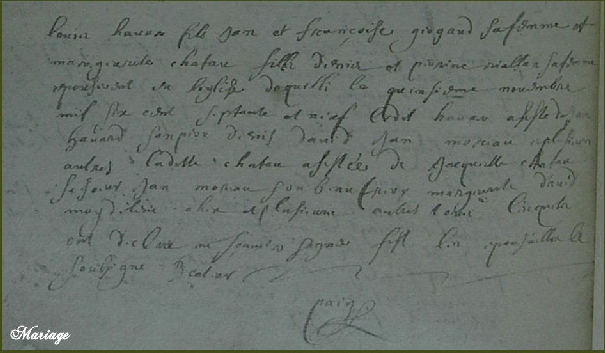 louis havar fils Jan et francoise gigaud sa femme et
marguerite chatau fille denis et perrine
epouserent en leglise daquilli le quinsieme novembre
mil six cent septante et neuf ledit havar assisté de Jan
havard son pere denis david Jan moreau et plusieurs
autres Laditte chatau assistée de Jacquette chatau
sa soeur Jan moreau son beau frere marguerite david
et plusieurs autres tous Lesquels
ont declaré ne scavoir signer fist les epousailles le
soubsigne
©Mariage